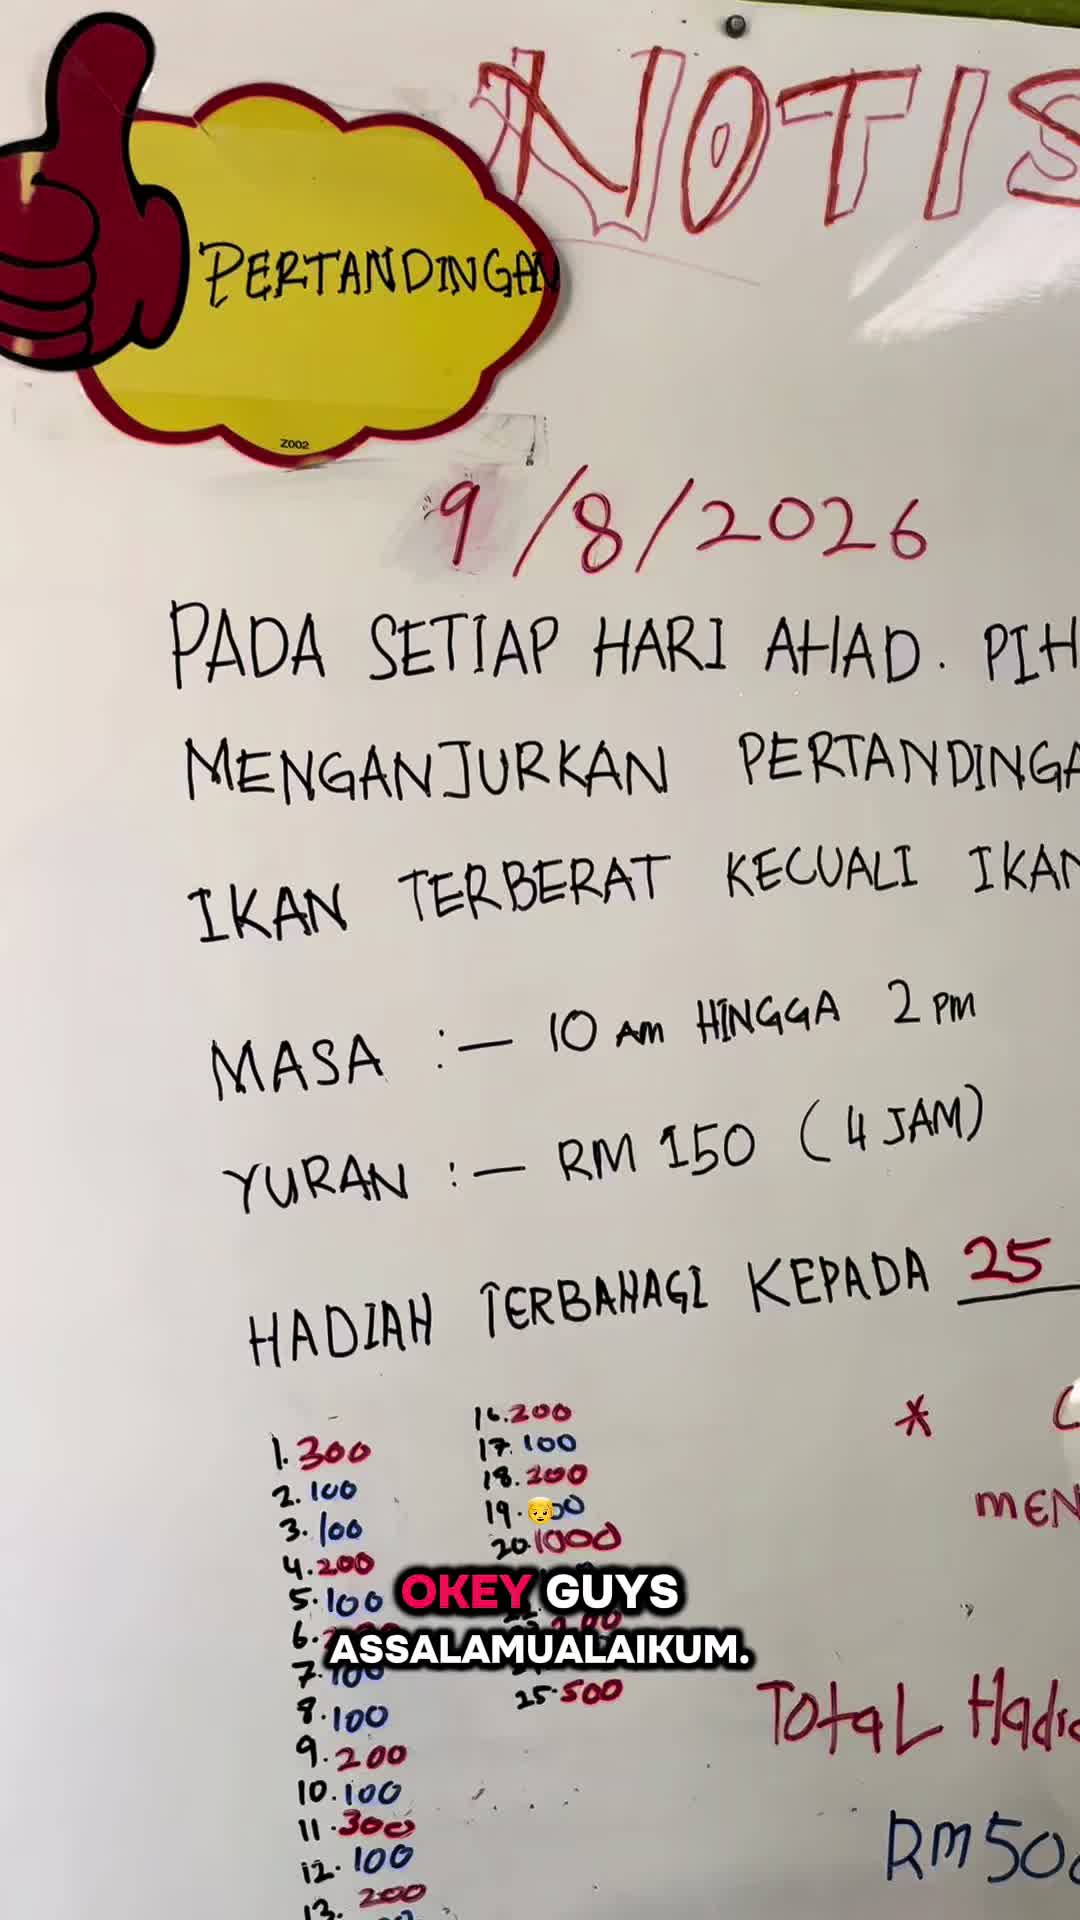 NOTIS
PERTANDINGAN
Z002
9/8/2026
PADA SETIAP HARI AHAD. PIH
MENGANJURKAN PERTANDINGA
IKAN TERBERAT KECUALI IKAN
MASA :- 10 AM HINGGA 2 PM
YURAN :- RM 150 (4 JAM)
HADIAH TERBAHAGI KEPADA 25
1. 300
2. 100
3. 100
4. 200
5. 100
6.
7. 100
8. 100
9. 200
10. 100
11. 300
12. 100
13. 200
16. 200
17. 100
18. 200
19.
20. 1000
25. 500
*
MEN
TOTAL Hadia
RM 500
OKEY GUYS
ASSALAMUALAIKUM.